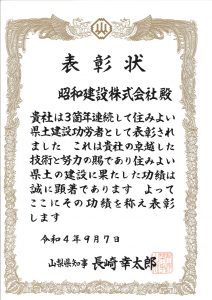 表彰状
昭和建設株式会社殿
貴社は3箇年連続して住みよい
県土建設功労者として表彰され
ました　これは貴社の卓越した
技術と努力の賜であり住みよい
県土の建設に果たした功績は
誠に顕著であります　よって
ここにその功績を称え表彰
します
令和4年9月7日
山梨県知事　長崎幸太郎